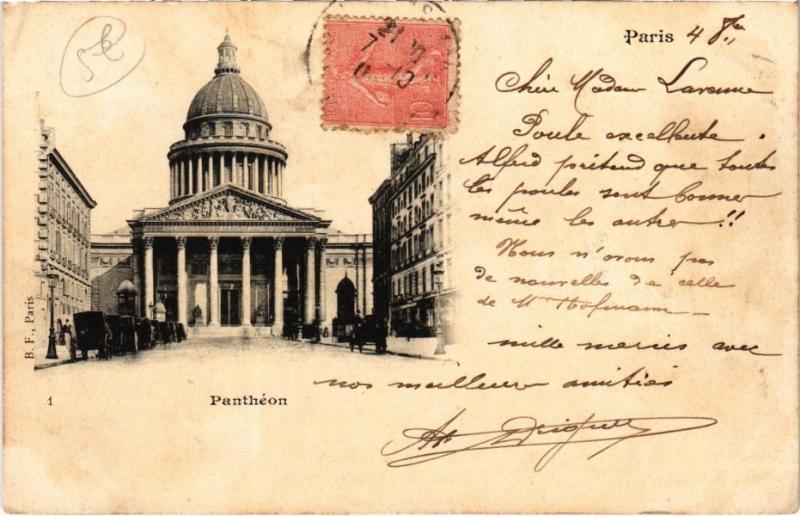 Paris 4
Chère Madame
Poule excellente.
Alfred prétend que toutes
les poules sont bonnes
même les autres !!
Nous n'avons pas
de nouvelles de celle
de Mr Hofmann
mille mercis avec
nos meilleures amitiés
B. F., Paris
1
Panthéon
10